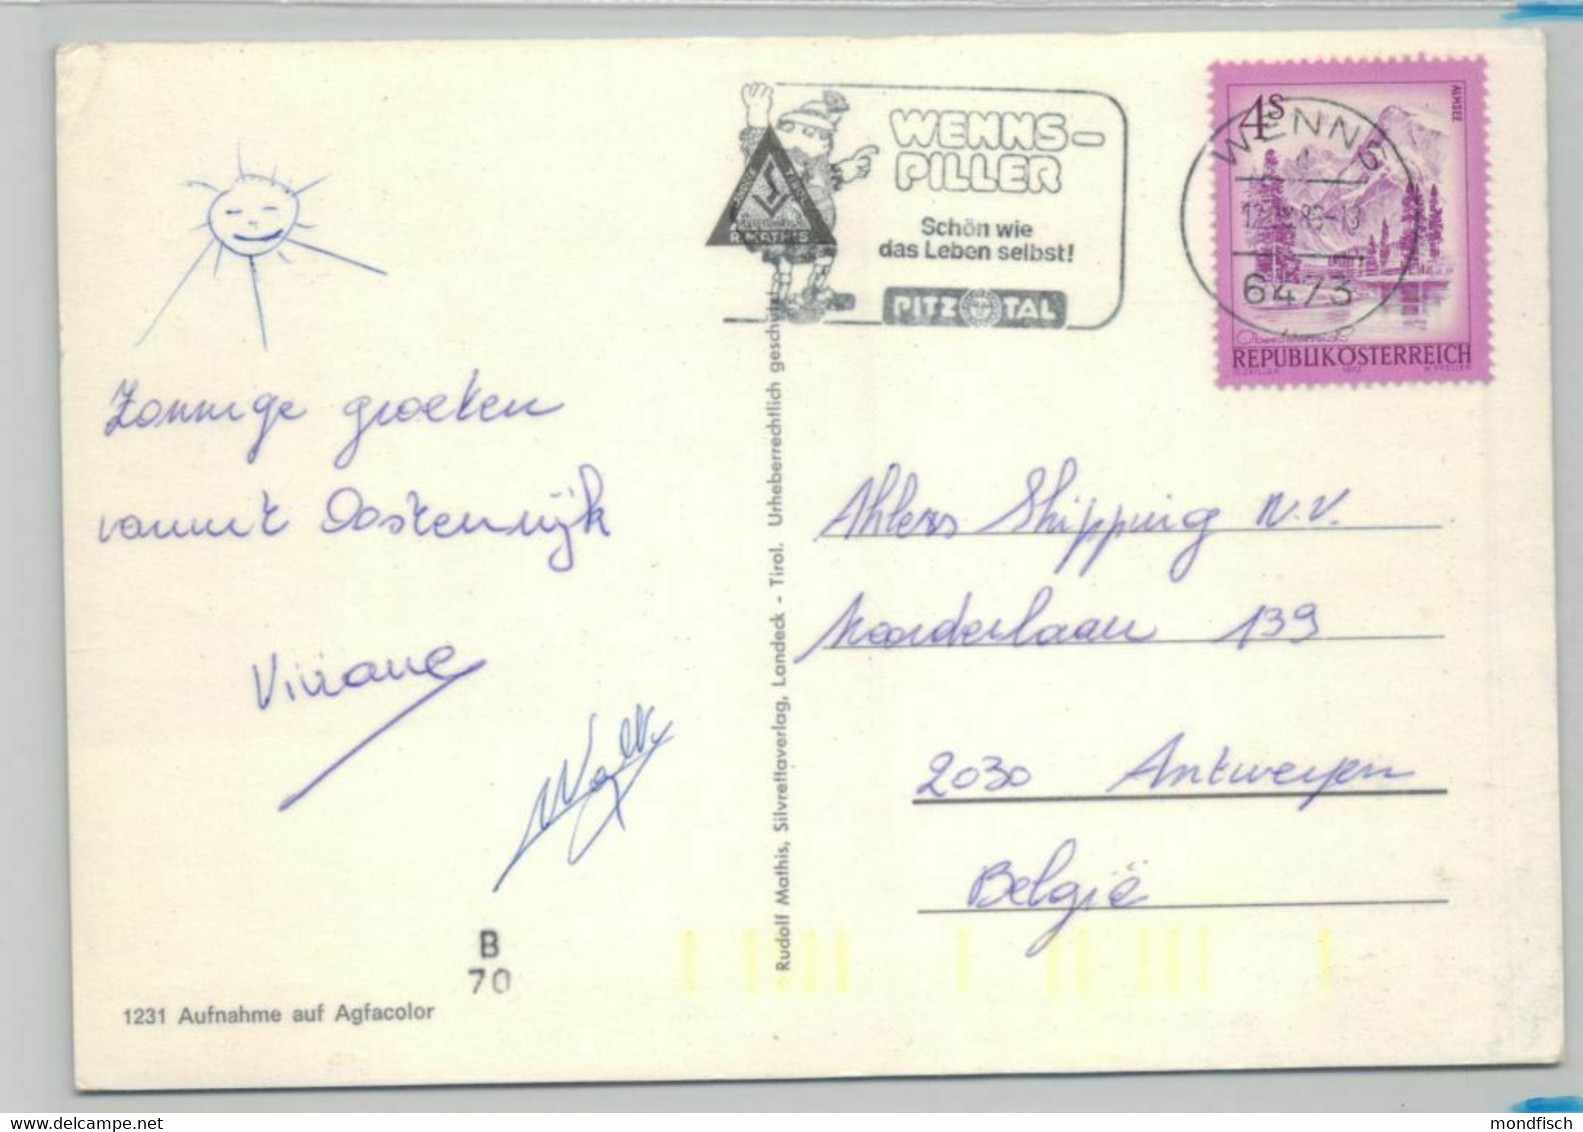 WENNS-
PILLER
Schön wie
das Leben selbst!
PITZTAL
R.MATHIS
4S
ALMSEE
WENNS
6473
REPUBLIKÖSTERREICH
Zonnige groeten
vanuit Oostenrijk
Viviane
Ahlers Shipping N.V.
Noorderlaan 139
2030 Antwerpen
België
Rudolf Mathis, Silvrettaverlag, Landeck - Tirol. Urheberrechtlich geschützt
B
70
1231 Aufnahme auf Agfacolor
mondfisch